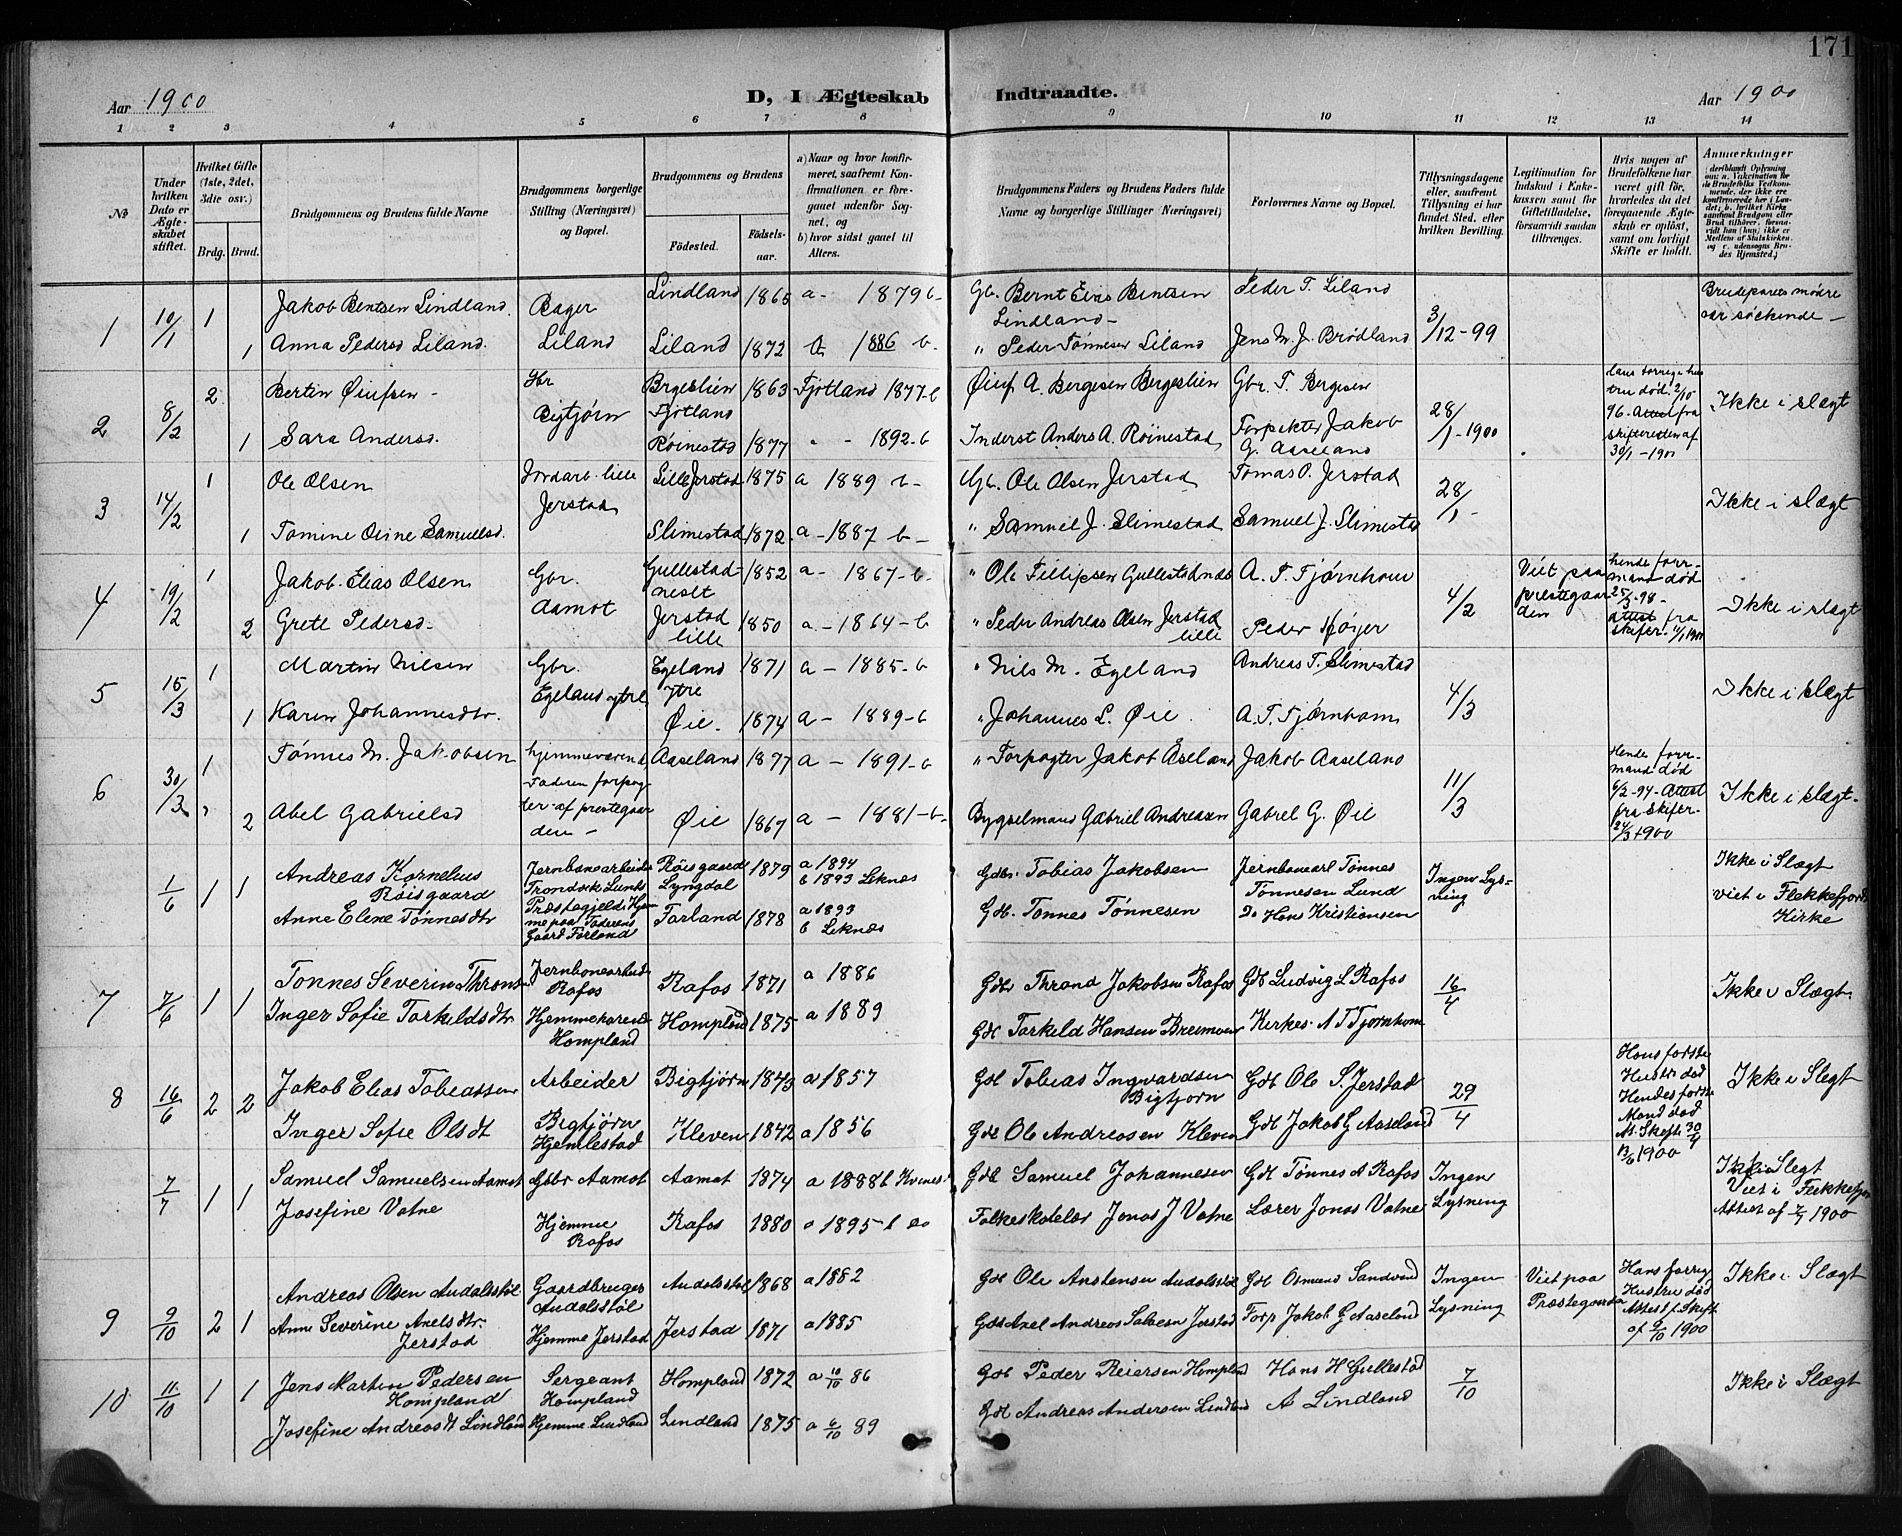 171
Aar 1900
D, I Ægteskab Indtraadte.
Aar 1900
1 2 3 4 5 6 7 8 9 10 11 12 13 14
№
Under hvilken Dato er Ægteskabet stiftet.
Hvilket Gifte (1ste, 2det, 3die osv.)
Brdg. Brud.
Brudgommens og Brudens fulde Navne
Brudgommens borgerlige Stilling (Næringsvei) og Bopæl.
Brudgommens og Brudens
Födested.
Födselsaar.
a) Naar og hvor konfirmeret, saafremt Konfirmationen er foregaaet udenfor Sognet, og
b) hvor sidst gaaet til Alters.
Brudgommens Faders og Brudens Faders fulde Navne og borgerlige Stillinger (Næringsvei)
Forlovernes Navne og Bopæl.
Tillysningsdagene eller, saafremt Tillysning ei har fundet Sted, efter hvilken Bevilling.
Legitimation for Indskud i Enkekassen samt for Giftetilladelse, forsaavidt saadan tiltrænges.
Hvis nogen af Brudefolkene har været gift før, hvorledes da det foregaaende Ægteskab er oplöst, samt om lovligt Skifte er holdt.
Anmærkninger
1 10/1 1 Jakob Bentsen Lindland. Bager Lindland 1865 a- 1879 b- Gb. Bernt Elias Bentsen Lindland- Peder T. Liland 3/12-99 Brudeparets mødre var søskende -
1 Anna Pedersd Liland. Liland Liland 1872 a 1886 b- " Peder Tønnesen Liland Jens M. J. Brødland
2 8/2 2 Bertin Øiufsen - Gbr Bigtjørn Brgeslien Fjotland 1863 Fjotland 1877-b Øiuf A. Bergesen Bergeslien Gbr. T. Bergesen 28/1-1900 hans forrige hustru død 2/10 96. Attest fra skifteretten af 30/1-1900 Ikke i slægt
1 Sara Andersd. Røinestad 1877 " - 1892-b Inderst Anders A. Røinestad Forpakter Jakob G. Aaseland
3 14/2 1 Ole Olsen Jordarb. lille Jerstad Lille Jerstad 1875 a 1889 b- Gb. Ole Olsen Jerstad Tomas O. Jerstad 28/1- Ikke i slægt
1 Tomine Oline Samuelsd. Slimestad 1872. a - 1887 b- " Samuel J. Slimestad Samuel J. Slimestad
4 19/2 1 Jakob Elias Olsen Gbr. Aamot Gullestadneset 1852 a- 1867-b- " Ole Fillipsen Gullestadnes A. T. Tjørnhom 4/2 Viet paa prestegaarden hendes forrmand død 25/3-98- attest fra skifter. 11/1 1900 Ikke i slægt
2 Grete Pedersd- Jerstad lille 1850 a.-1864-b " Peder Andreas Olsen Jerstad lille Peder Høyer
5 15/3 1 Martin Nilsen Gbr. Egeland ytre Egeland ytre 1871 a - 1885-b " Nils M. Egeland Andreas T. Slimestad 4/3 Ikke i slægt
1 Karen Johannesdtr. Øie. 1874 a - 1889-b " Johannes L. Øie. A. T. Tjørnhom
6 30/3 1 Tønnes M. Jakobsen hjemmeværende Faderen forpagter af prestegaarden - Aaseland 1877 a - 1891-b " Forpagter Jakob Åseland Jakob Aaseland 11/3 Hendes forrmand død 6/2-94- Attest fra skifter- 24/3 1900 Ikke i slægt-
2 Abel Gabrielsd Øie 1867 a - 1881-b- Bygselmand Gabriel Andreasen Gabrel G. Øie
1/6 1 1 Andreas Kornelius Røisgaard Jernbanearbeider Trondvik Lunds Præstegjeld Hjemme paa Faderens Gaard Forland Røisgaard Lyngdal 1879 a 1894 b 1893 Leknes Gdbr Tobias Jakobsen Jernbanearb Tønnes Tønnesen Lund Ingen Lysning Ikke i Slægt viet i Flekkefjords Kirke
Anne Elene Tønnesdtr Forland 1878 a 1893 b Leknes Gdb. Tønnes Tønnesen Do Hans Kristiansen
7 7/6 1 1 Tønnes Severin Thronsen Jernbanearbeid Rafos Rafos 1871 a 1886 Gdb Thrond Jakobsen Rafos Gdb Ludvig L Rafos 16/4 Ikke i Slægt
Inger Sofie Torkeldsdtr Hjemmeværende Hompland Hompland 1875 a 1889 Gdb Torkeld Hansen Breimoen Kirkes. A T Tjørnhom
8 16/6 2 2 Jakob Elias Tobiassen Arbeider Bigtjørn Bigtjørn 1843 a 1857 Gdb Tobias Ingvardsen Bigtjorn Gdb Ole S. Jerstad 29/4 Hans første Hustru død Hendes første Mand død At. Skifte 30/4 13/6 1900 Ikke i Slegt
Inger Sofie Olsdt Hjemlestad Kleven 1842 a 1856 Gdb Ole Andreasen Kleven Gdb Jakob G Aaseland
7/7 1 1 Samuel Samuelsen Aamot Gbbr Aamot Aamot 1874 a 1888 b Kvines- Gdb Samuel Johannesen Gdb Tønnes A Rafos Ingen Lysning Ikke i Slegt Viet i Flekkefjor Attest af 7/7 1900
Josefine Vatne Hjemme Rafos Rafos 1880 a 1895-b do Folkeskolelær Jonas J Vatne Lærer Jonas Vatne
9 9/10 2 1 Andreas Olsen Audalsstøl Gaardbruger Audalsstøl Audalsstøl 1868 a 1882 Gdb Ole Anstensen Audalsstøl Gdb Osmund Sandvand Ingen Lysning Viet paa Præstegaarden Hans forrig Hustru død Attest f. Skift af 9/10 1900 Ikke i Slægt
Anne Severine Axelsdtr. Jerstad Hjemme Jerstad Jerstad 1871 a 1885 Gdb Axel Andreas Salvesen Jerstad Forp Jakob G Aaseland
10 11/10 1 1 Jens Martin Pedersen Hompland Sergeant Hompland Hompland 1872 a 10/10 86 Gdb Peder Reiersen Hompland Hans H Gullestad 7/10 Ikke i Slægt
Josefine Andreasdt Lindland Hjemme Lindland Lindland 1875 a 6/10 89 Gdb Andreas Andersen Lindland A Lindland